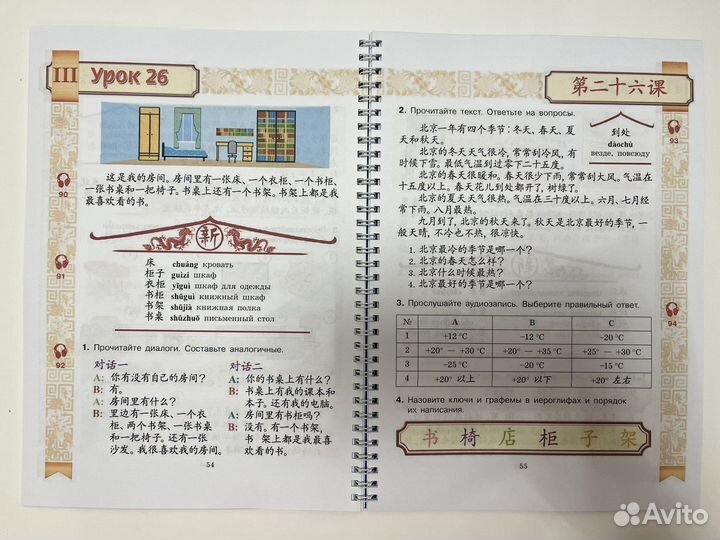 III Урок 26
90
这是我的房间。房间里有一张床、一个衣柜、一个书柜、
一张书桌和一把椅子。书桌上还有一个书架。书架上都是我
最喜欢看的书。
新
91
床 chuáng кровать
柜子 guìzi шкаф
衣柜 yīguì шкаф для одежды
书柜 shūguì книжный шкаф
书架 shūjià книжная полка
书桌 shūzhuō письменный стол
92
1. Прочитайте диалоги. Составьте аналогичные.
对话一
A: 你有没有自己的房间?
B: 有。
A: 房间里有什么?
B: 里边有一张床、一个衣
柜、两个书架、一张书桌
和一把椅子。还有一张
沙发。我很喜欢我的房间。
对话二
A: 你的书桌上有什么?
B: 书桌上有我的课本和
本子。还有我的电脑。
A: 房间里有书柜吗?
B: 没有。有一个书架,
书 架上都是我最喜
欢看的书。
54
第二十六课
2. Прочитайте текст. Ответьте на вопросы.
到处
dàochù
везде, повсюду
93
北京一年有四个季节:冬天、春天、夏
天和秋天。
北京的冬天天气很冷,常常刮冷风,有
时候下雪。最低气温到过零下二十五度。
北京的春天很暖和。春天很少下雨,常常刮大风。气温在
十五度以上。春天花儿到处都开了,树绿了。
北京的夏天天气很热。气温在三十度以上。六月、七月经
常下雨。八月最热。
九月到了,北京的秋天来了。秋天是北京最好的季节,一
般天晴,不冷也不热,很凉快。
1. 北京最冷的季节是哪一个?
2. 北京的春天怎么样?
3. 北京什么时候最热?
4. 北京最好的季节是哪一个?
3. Прослушайте аудиозапись. Выберите правильный ответ.
94
№ A B C
1 +12 °C −12 °C −20 °C
2 +20° − +30 °C +20° − +35 °C +25° − +30 °C
3 −25 °C −20 °C −15 °C
4 +20° 以上 +20° 以下 +20° 左右
4. Назовите ключи и графемы в иероглифах и порядок
их написания.
书 椅 店 柜 子 架
55
Avito